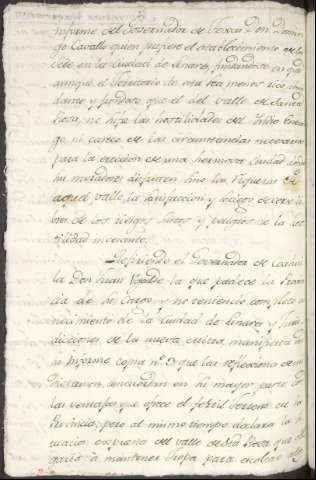 Informe del Governador de Texas Don Domin
go Cavello quien prefiere el establecimiento de la
Sede en la Ciudad de Linares, fundandose en que
aunque el Territorio de esta sea menos rico abun
dante y frondoso que el del valle de Santa
Rosa, no sufre las hostilidades del Indio Enemi
go ni carece de las circunstancias necesarias
para la ereccion de una hermosa Ciudad donde
sus moradores disfruten sino las riquezas de
aquel valle, la satisfaccion y sociego de verse li
bres de los riesgos sustos y peligros de la hos
tilidad incesante.
Refiriendo el Governador de Coahui
la Don Juan Ugalde la que padece la Provin
cia de su Cargo, y no teniendo completo co
nocimiento de la Ciudad de Linares y Juris
dicciones de la nueva
su Informe copia nº 3 que las reflexiones de mi
Dictamen, en su mayor parte con
las ventajas que ofrece el fertil Terreno de su
Provincia, pero al mismo tiempo declara la si
tuacion expuesta del valle de Sta Rosa que obli
garia a mantener Tropa para escoltar